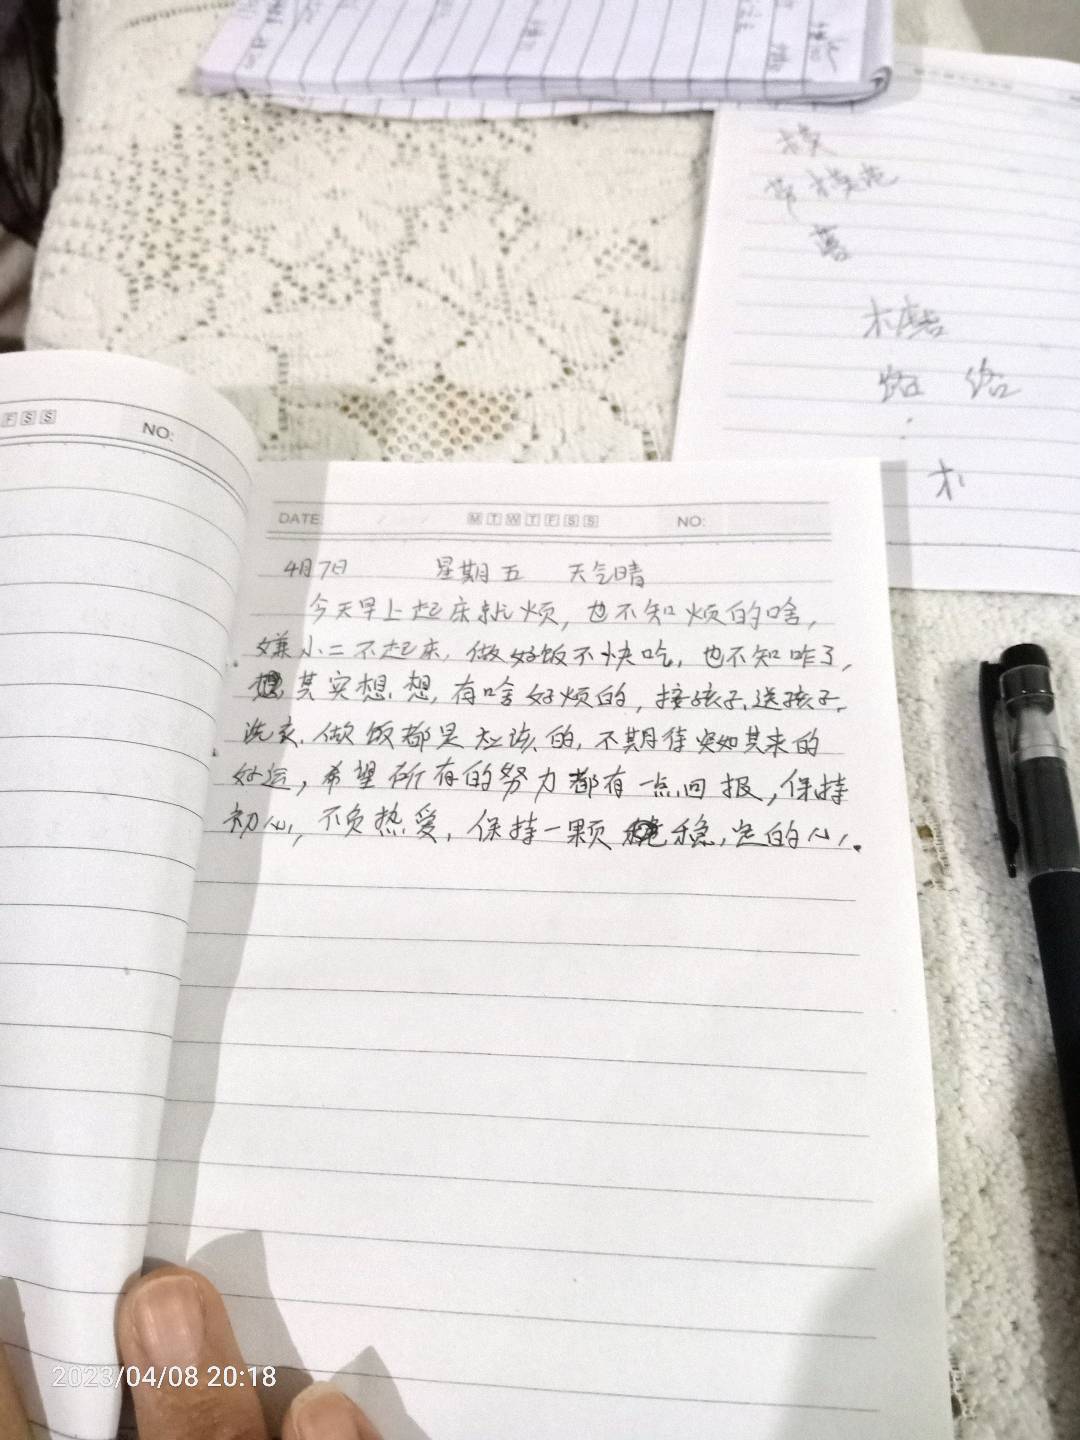 模
常模范
蓦
路 络
FSS
NO:
DATE: / / MTWTFSS NO:
4月7日 星期五 天气晴
今天早上起床就烦，也不知烦的啥，
嫌小二不起床，做好饭不快吃，也不知咋了，
其实想想，有啥好烦的，接孩子、送孩子、
洗衣、做饭都是应该的，不期待突如其来的
好运，希望所有的努力都有一点回报，保持
初心，不负热爱，保持一颗稳定的心。
2023/04/08 20:18